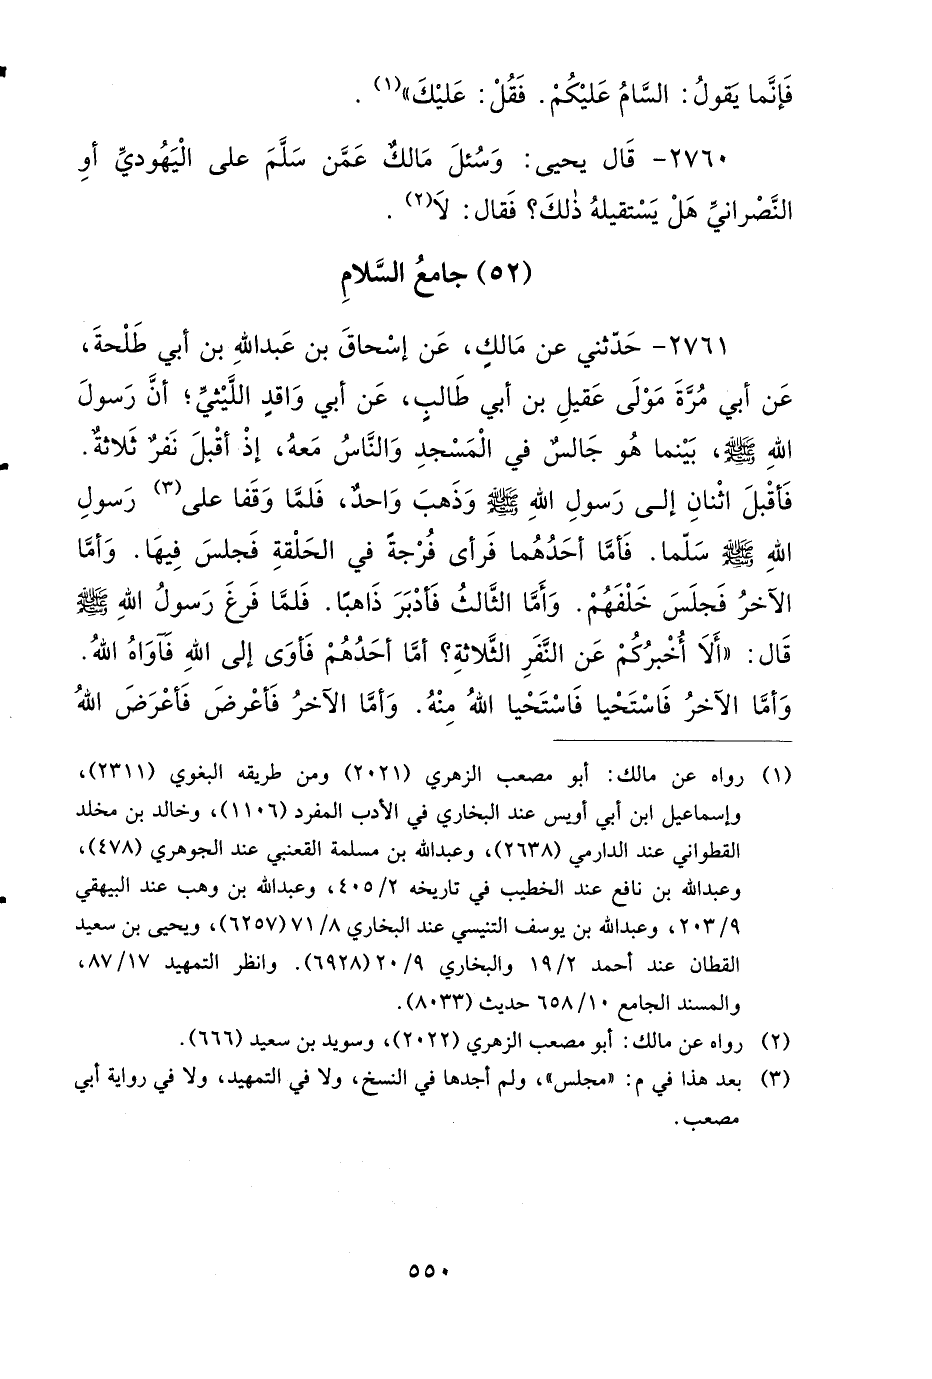 فَإنَّما يَقولُ: السَّامُ عَلَيْكُمْ. فَقُلْ: عَلَيْكَ»(١) .
٢٧٦٠- قَال يحيى: وَسُئلَ مَالكٌ عَمَّن سَلَّمَ على الْيَهُوديِّ أو
النَّصْرانيِّ هَلْ يَسْتقيلهُ ذٰلكَ؟ فَقال: لَا(٢) .
(٥٢) جامعُ السَّلامِ
٢٧٦١- حَدّثني عن مَالكٍ، عَن إسْحاقَ بن عَبداللهِ بن أبي طَلْحةَ،
عَن أبي مُرَّةَ مَوْلَى عَقيلِ بن أبي طَالبٍ، عَن أبي وَاقدٍ اللَّيْثيِّ؛ أنَّ رَسولَ
اللهِ ﷺ، بَيْنما هُو جَالسٌ في الْمَسْجدِ وَالنَّاسُ مَعهُ، إذْ أقْبلَ نَفرٌ ثَلاثةٌ.
فَأقْبلَ اثْنانِ إلى رَسولِ اللهِ ﷺ وَذَهبَ وَاحدٌ، فَلمَّا وقَفا على(٣) رَسولِ
اللهِ ﷺ سَلّما. فَأمَّا أحَدُهُما فَرأى فُرْجةً في الحَلْقةِ فَجلسَ فِيهَا. وَأمَّا
الآخرُ فَجلَسَ خَلْفَهُمْ. وَأَمَّا الثَّالثُ فَأدْبَرَ ذَاهبًا. فَلمَّا فَرغَ رَسولُ اللهِ ﷺ
قَال: «أَلَا أُخْبرُكُمْ عَن النَّفَرِ الثَّلاثةِ؟ أمَّا أحَدُهُمْ فَأوَى إلى اللهِ فَآوَاهُ اللهُ.
وَأمَّا الآخرُ فَاسْتَحْيا فَاسْتَحْيا اللهُ مِنْهُ. وَأمَّا الآخرُ فَأعْرضَ فَأعْرَضَ اللهُ
(١) رواه عن مالك: أبو مصعب الزهري (٢٠٢١) ومن طريقه البغوي (٢٣١١)،
وإسماعيل ابن أبي أويس عند البخاري في الأدب المفرد (١١٠٦)، وخالد بن مخلد
القطواني عند الدارمي (٢٦٣٨)، وعبدالله بن مسلمة القعنبي عند الجوهري (٤٧٨)،
وعبدالله بن نافع عند الخطيب في تاريخه ٤٠٥/٢، وعبدالله بن وهب عند البيهقي
٢٠٣/٩، وعبدالله بن يوسف التنيسي عند البخاري ٧١/٨ (٦٢٥٧)، ويحيى بن سعيد
القطان عند أحمد ١٩/٢ والبخاري ٢٠/٩ (٦٩٢٨). وانظر التمهيد ٨٧/١٧،
والمسند الجامع ٦٥٨/١٠ حديث (٨٠٣٣).
(٢) رواه عن مالك: أبو مصعب الزهري (٢٠٢٢)، وسويد بن سعيد (٦٦٦).
(٣) بعد هذا في م: «مجلس»، ولم أجدها في النسخ، ولا في التمهيد، ولا في رواية أبي
مصعب.
٥٥٠